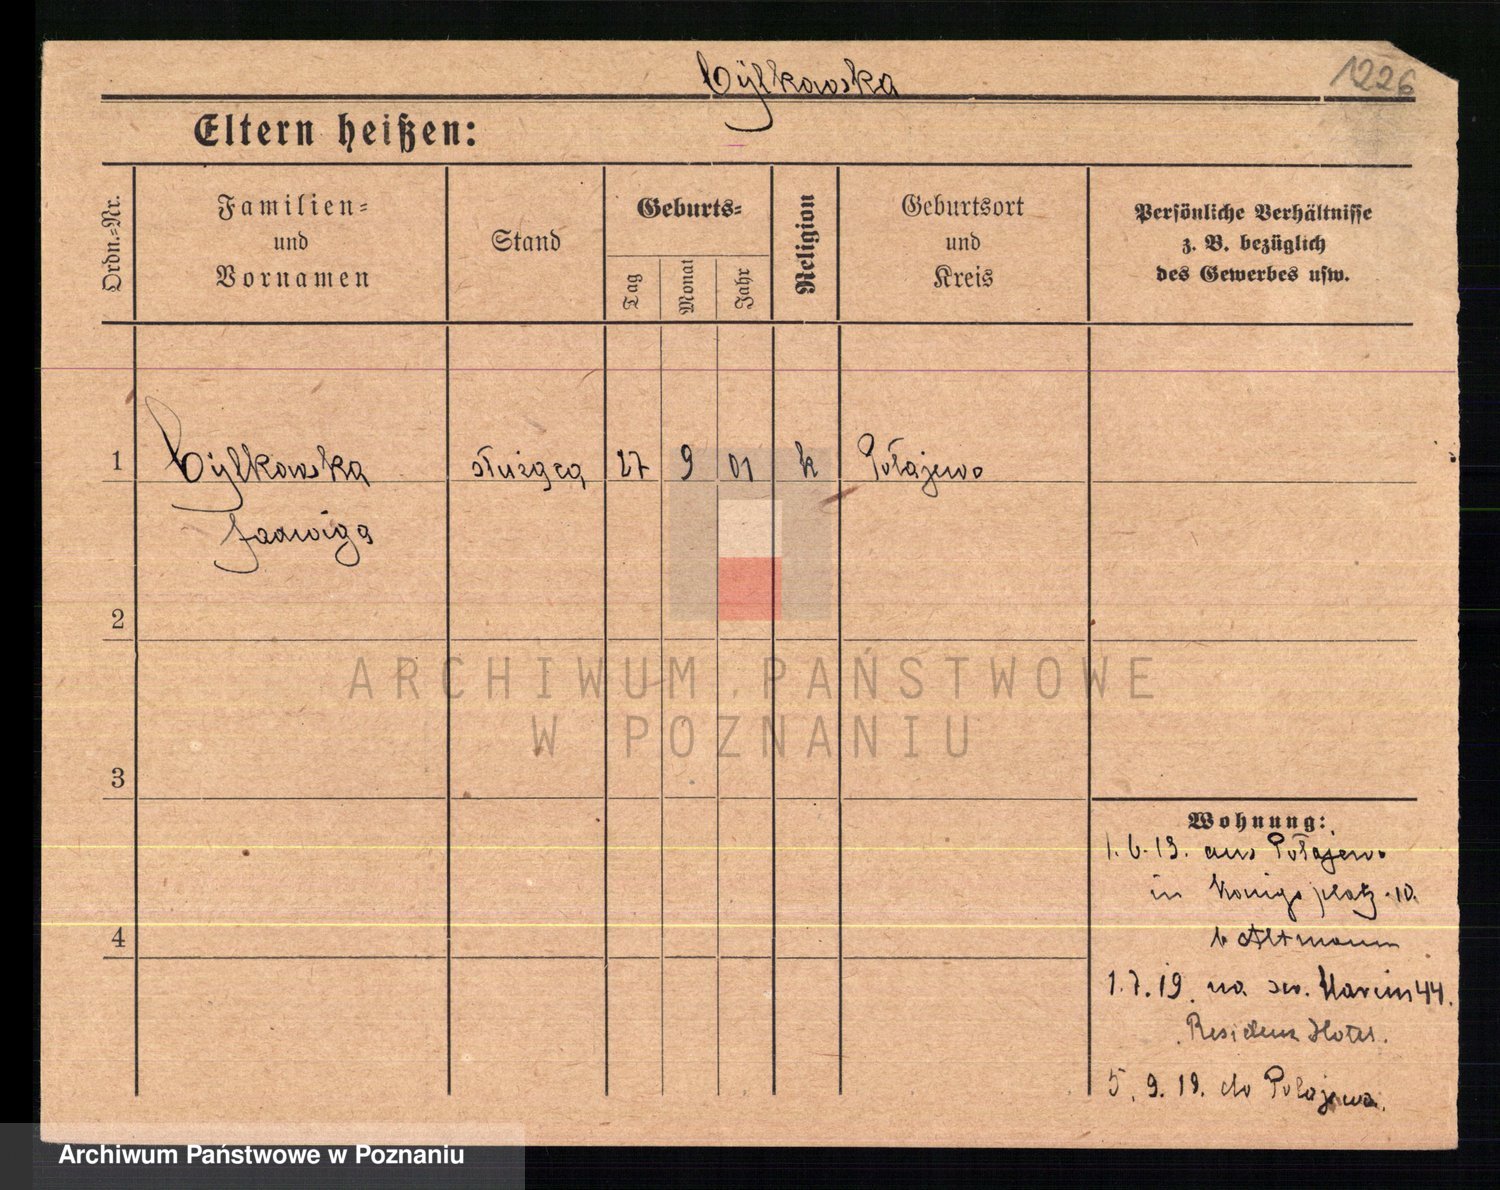 Cylkowska
1226
Eltern heißen:
Ordn.-Nr.
Familien-
und
Vornamen
Stand
Geburts-
Tag
Monat
Jahr
Religion
Geburtsort
und
Kreis
Persönliche Verhältnisse
z. B. bezüglich
des Gewerbes usw.
1 Cylkowska służąca 27 9 01 k Połajewo
Jadwiga
2
3
4
Wohnung:
1.6.19. aus Połajewo
in Königsplatz 10.
b Altmann
1.7.19. na św. Marcin 44.
Residenz Hotel.
5.9.19. do Polajewa.
ARCHIWUM PAŃSTWOWE
W POZNANIU
Archiwum Państwowe w Poznaniu